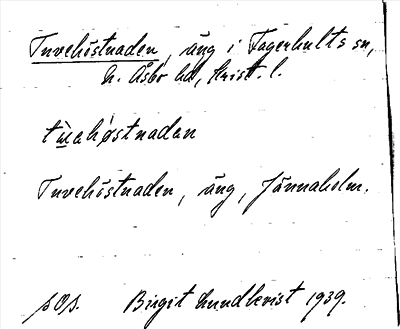 Tuvehöstnaden, äng i Fagerhults sn,
N. Åsbo hd, Krist. l.
tɯvahøstnadan
Tuvehöstnaden, äng, Jännaholm.
sOs. Birgit Lundkvist 1939.